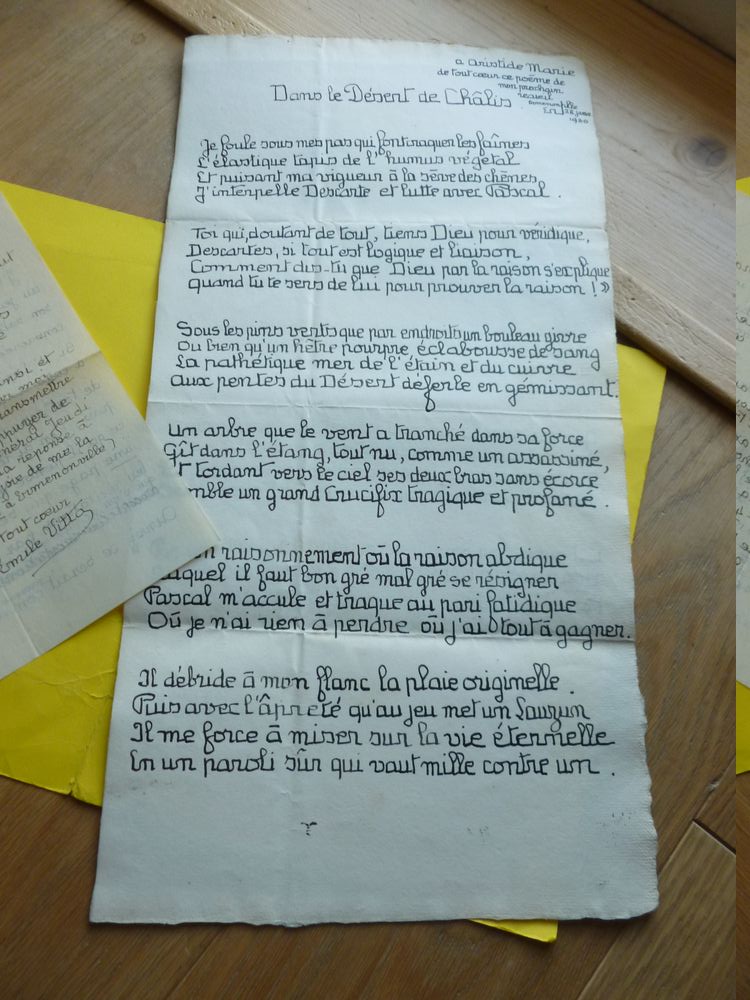 a Aristide Marie
de tout cœur ce poème de
mon prochain
recueil
Ermenonville
1930
Dans le Désert de Châlis
Je foule sous mes pas qui font craquer les faînes
L'élastique tapis de l'humus végétal
Et puisant ma vigueur à la sève des chênes,
J'interpelle Descarte et lutte avec Pascal.
Toi qui, doutant de tout, tiens Dieu pour véridique,
Descartes, si tout est logique et liaison,
Comment dis-tu que Dieu par la raison s'explique
quand tu te sers de lui pour prouver la raison ! »
Sous les pins verts que par endroits un bouleau givre
Ou bien qu'un hêtre pourpre éclabousse de sang
La pathétique mer de l'étain et du cuivre
Aux pentes du Désert déferle en gémissant.
Un arbre que le vent a tranché dans sa force
Gît dans l'étang, tout nu, comme un assassiné,
Et tordant vers le ciel ses deux bras sans écorce
mble un grand Crucifix tragique et profané.
n raisonnement où la raison abdique
uquel il faut bon gré mal gré se résigner
Pascal m'accule et traque au pari fatidique
Où je n'ai rien à perdre où j'ai tout à gagner.
Il débride à mon flanc la plaie originelle.
Puis avec l'âpreté qu'au jeu met un Lauzun
Il me force à miser sur la vie éternelle
En un paroli sûr qui vaut mille contre un.
et
transmettre
appuyer de
jeudi
la réponse à
joie de me la
à Ermenonville)
tout cœur
Emile Vitta